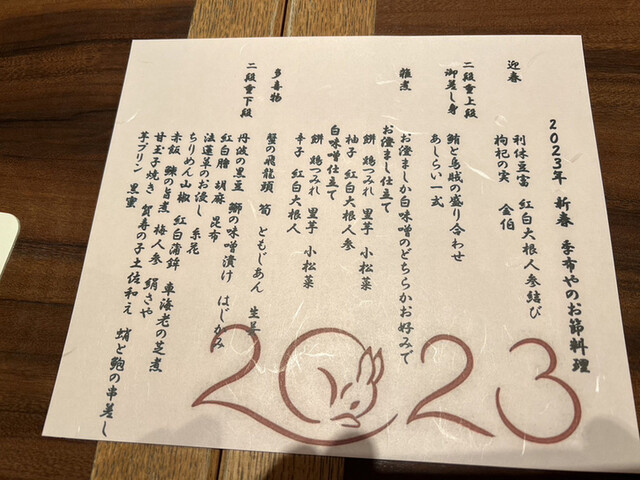 2023年 新春 季布やのお節料理
迎春
利休豆富 紅白大根人参結び
枸杞の実 金伯
二段重上段
御差し身
鮪と烏賊の盛り合わせ
あしらい一式
雑煮
お澄ましか白味噌のどちらかお好みで
お澄まし仕立て
餅 鶏つみれ 里芋 小松菜
柚子 紅白大根人参
白味噌仕立て
餅 鶏つみれ 里芋 小松菜
辛子 紅白大根人参
多喜物
蟹の飛龍頭 筍 ともじあん 生姜
二段重下段
丹波の黒豆 鰤の味噌漬け はじかみ
紅白膾 胡麻 昆布
法蓮草のお浸し 糸花
ちりめん山椒 紅白蒲鉾 車海老の芝煮
赤飯 鰊の旨煮 梅人参 絹さや
甘玉子焼き 賀寿の子土佐和え 蛸と鮑の串差し
芋プリン 黒蜜
2023